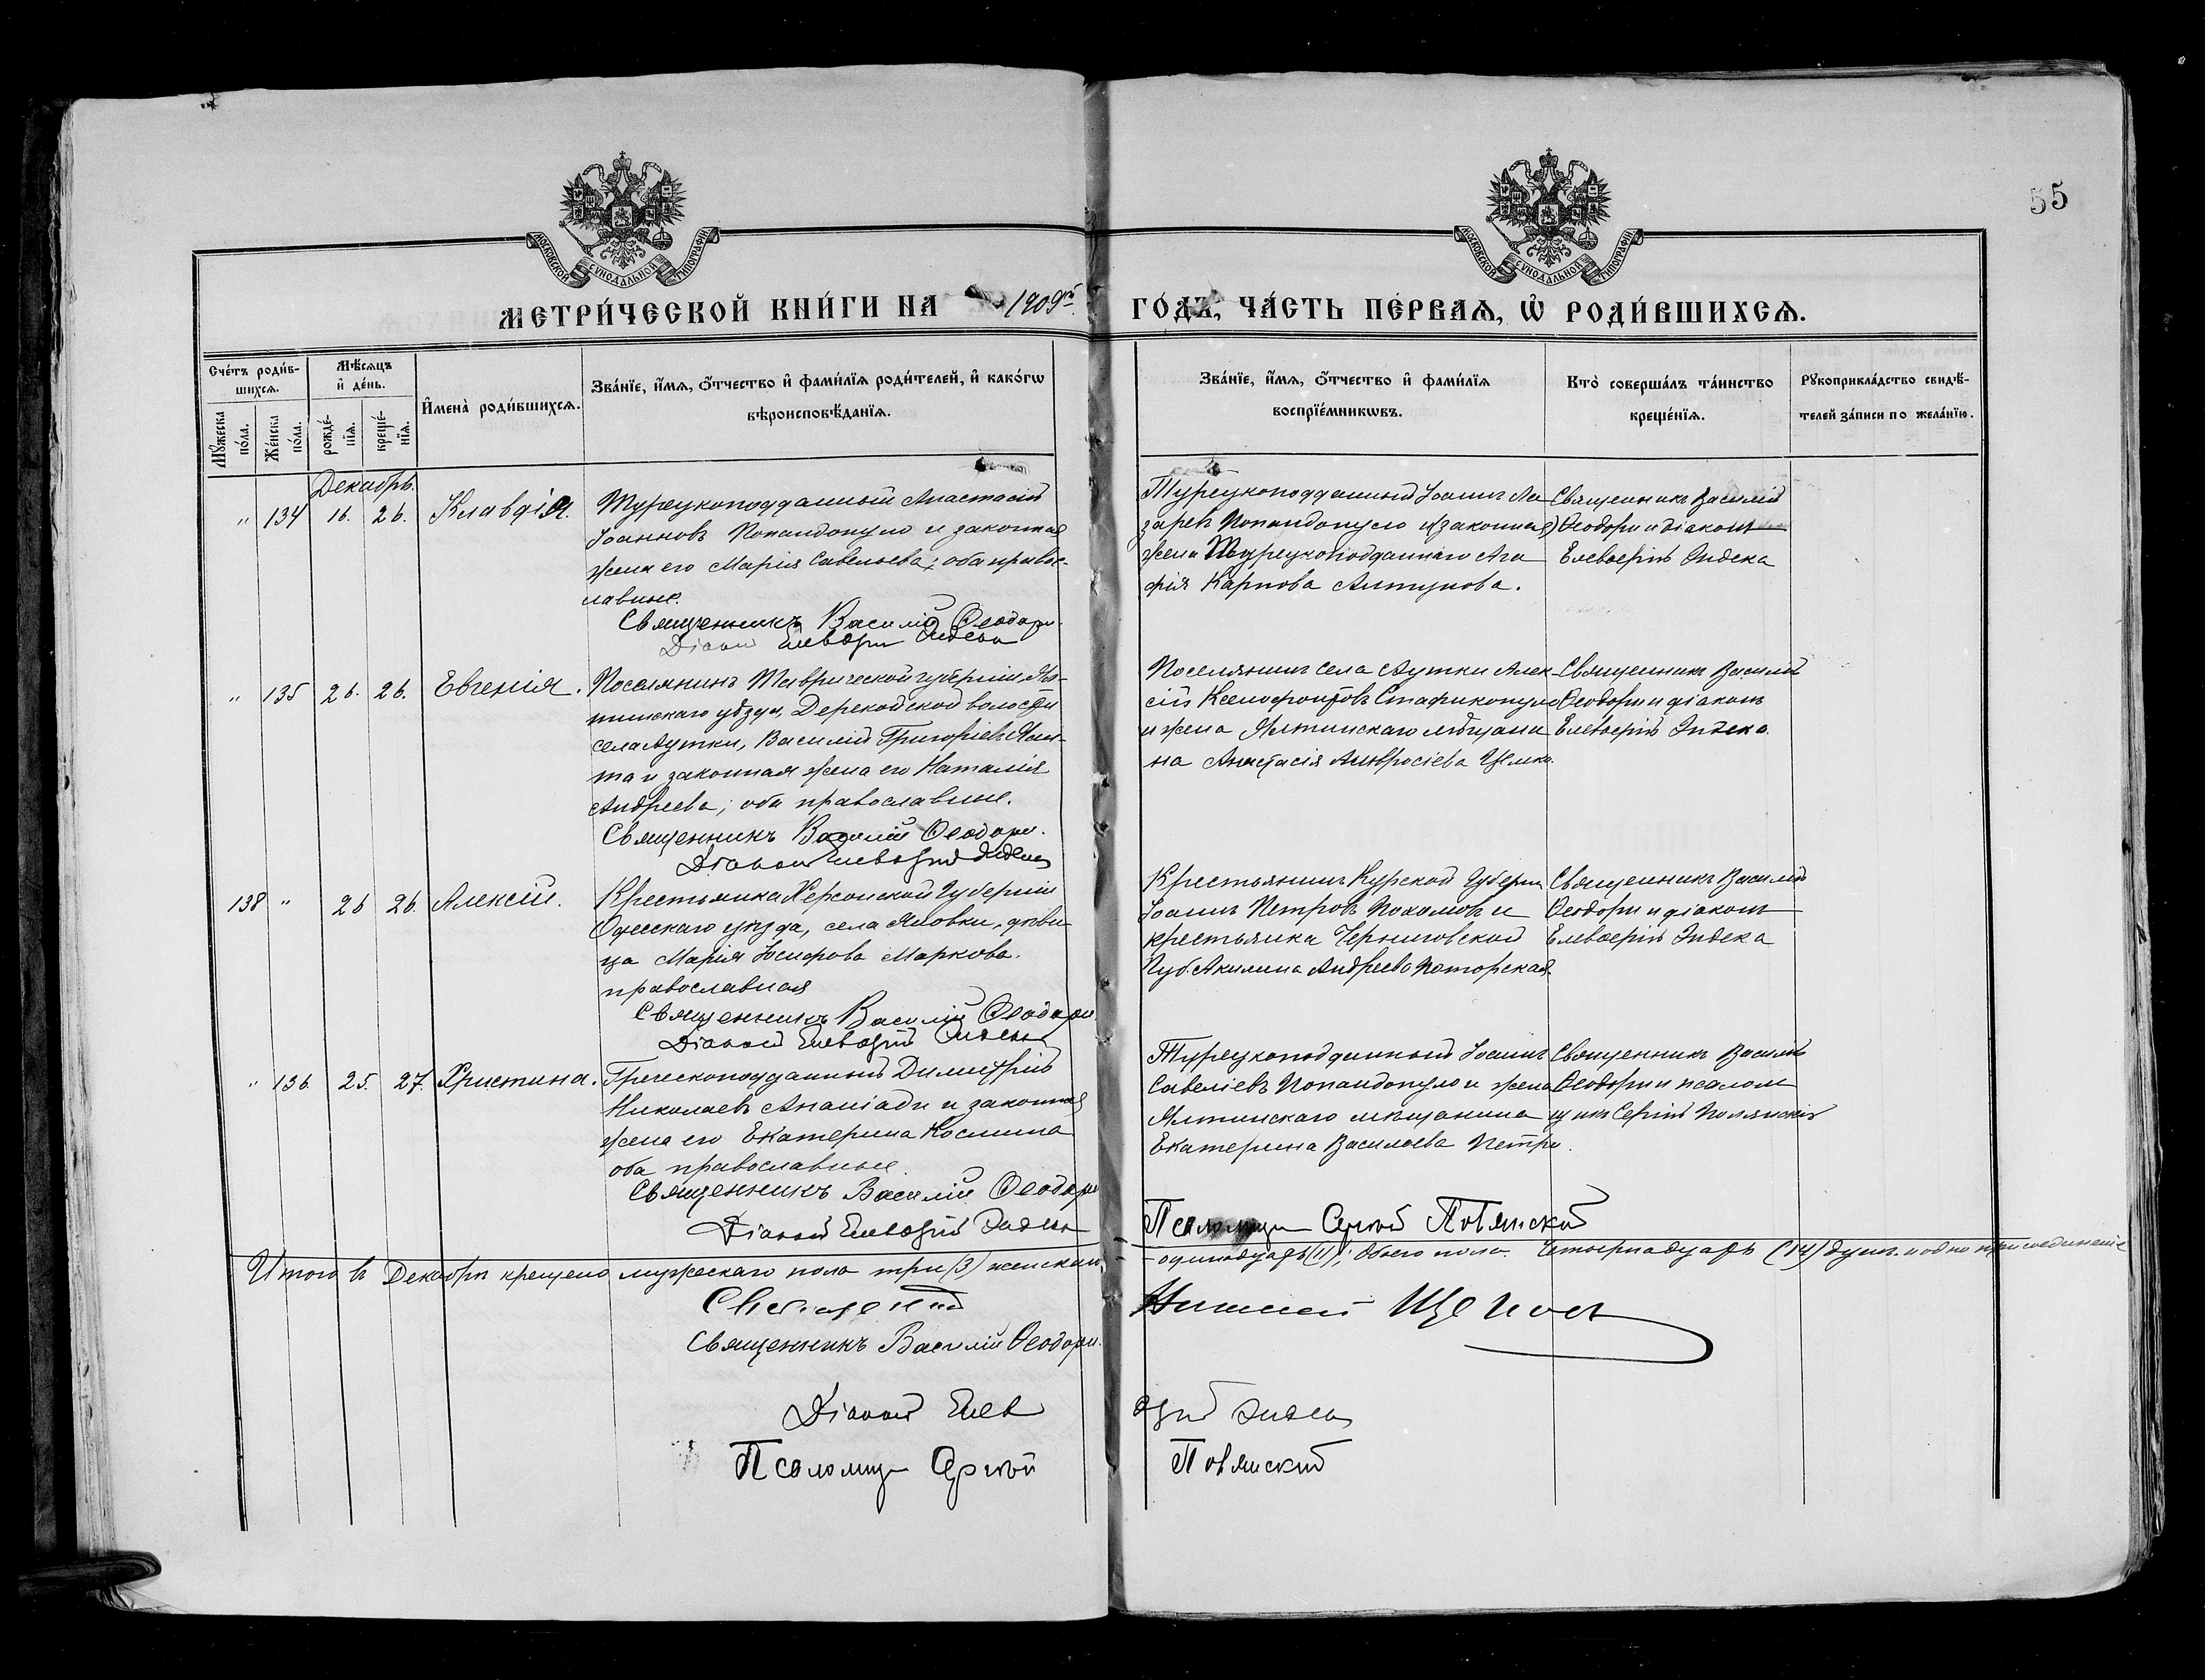 55
МОСКОВСКОЙ СѴНОДАЛЬНОЙ ТИПОГРАФІИ
МОСКОВСКОЙ СѴНОДАЛЬНОЙ ТИПОГРАФІИ
МЕТРИ́ЧЕСКОЙ КНИ́ГИ НА 1909й ГО́ДЪ, ЧА́СТЬ ПЕ́РВАѦ, Ѽ РОДИ́ВШИХСѦ.
Сче́тъ роди́в-
шихсѧ.
Мꙋ́жеска по́ла.
Же́нска по́ла.
Мѣ́сѧцъ
и҆ де́нь.
рожде́-
нїѧ.
креще́-
нїѧ.
И҆мена̀ роди́вшихсѧ.
Зва́нїе, и҆́мѧ, ѻ҆́тчество и҆ фами́лїѧ роди́телей, и҆ како́гѡ
вѣроисповѣ́данїѧ.
Зва́нїе, и҆́мѧ, ѻ҆́тчество и҆ фами́лїѧ
воспрїе́мникѡвъ.
Кто̀ соверша́лъ та́инство
креще́нїѧ.
Рꙋкоприкла́дство свидѣ́-
телей за́писи по жела́нїю.
Декабрь.
" 134 16. 26. Клавдія.
Турецкоподданный Анастасій
Іоанновъ Попандопуло и законная
жена его Марія Савельева; оба правос-
лавные.
Священникъ Василій Ѳеодори.
Діаконъ Елевѳерій Индека
Турецкоподданный Іоаннъ Ла-
заревъ Попандопуло и (законная)
жена Турецкоподданнаго Ага
фія Карпова Алтунова.
Священникъ Василій
Ѳеодори и діаконъ
Елевѳерій Индека
" 135 26. 26. Евгенія.
Поселянинъ Таврической губерніи, Ял-
тинскаго уѣзда, Дерекойской волости
села Аутки, Василій Григорьевъ
та и законная жена его Наталія
Андреева; оба православные.
Священникъ Василій Ѳеодори.
Діаконъ Елевѳерій Индека
Поселянинъ села Аутки Алек-
сій Ксенофонтовъ Стафикопуло
и жена Ялтинскаго мѣщани
на Анастасія Амвросіева
Священникъ Василій
Ѳеодори и діаконъ
Елевѳерій Индека
138 " 26 26. Алексій.
Крестьянка Херсонской Губерніи
Одесскаго уѣзда, села Яновки, дѣви
ца Марія Іосифова Маркова.
православная
Священникъ Василій Ѳеодори.
Діаконъ Елевѳерій Индека
Крестьянинъ Курской Губерніи
Іоаннъ Петровъ и
крестьянка Черниговской
Губ. Акилина Андреева
Священникъ Василій
Ѳеодори и діаконъ
Елевѳерій Индека
" 136. 25. 27. Христина.
Греческоподданный Димитрій
Николаевъ Ананіади и законная
жена его Екатерина Космина
оба православные.
Священникъ Василій Ѳеодори
Діаконъ Елевѳерій Индека
Турецкоподданный Іоаннъ
Савеліевъ Попандопуло и жена
Ялтинскаго мѣщанина
Екатерина Васильева Петри.
Священникъ Василій
Ѳеодори и псалом
щикъ Сергій Полянскій
Псаломщ Сергій Полянский
Итого въ Декабрѣ крещено мужескаго пола три (3) женскаго
- одинадцать (11); Обоего пола. Четырнадцать (14) душъ. и одно присоединеніе
Священникъ
Священникъ Василій Ѳеодори.
Діаконъ Елевѳерій Индека
Псаломщ Сергій Полянский